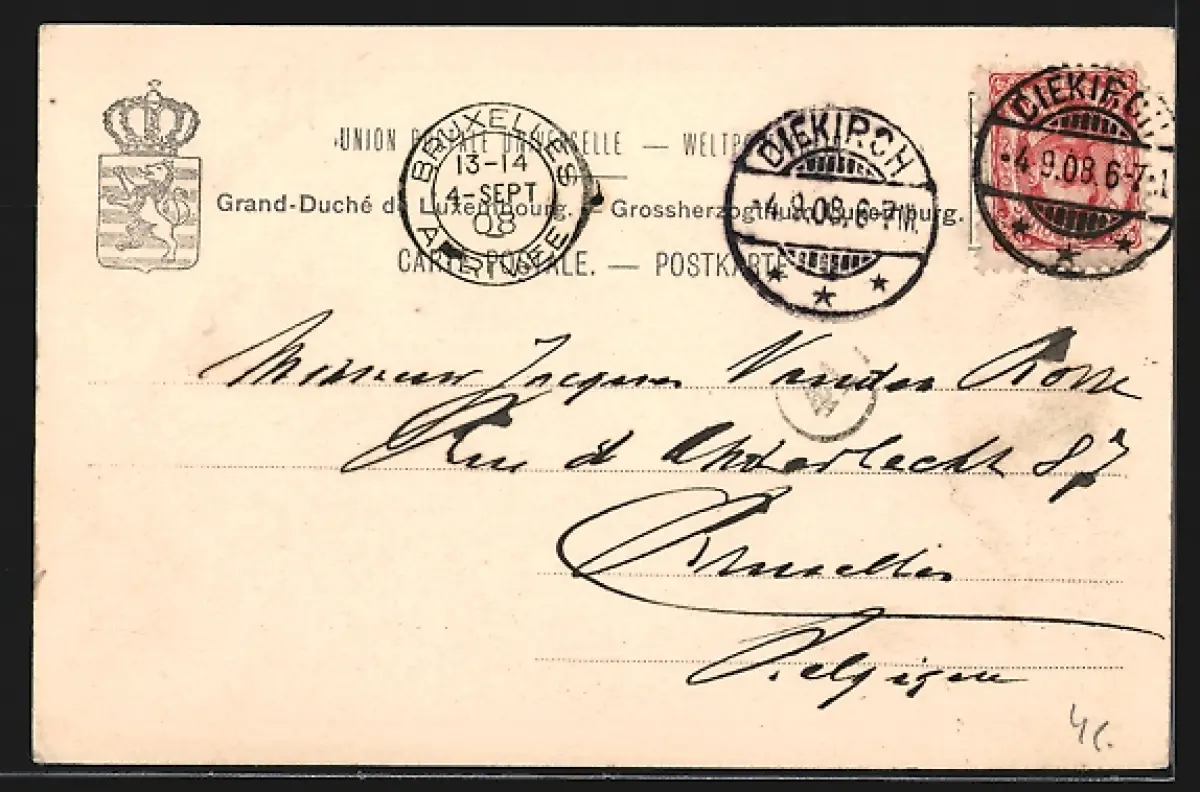 UNION POSTALE UNIVERSELLE — WELTPO
Grand-Duché de Luxembourg. — Grossherzogthum Luxemburg.
CARTE POSTALE. — POSTKARTE
BRUXELLES
13-14
4-SEPT
08
ARRIVÉE
DIEKIRCH
-4.9.08.6-7M.
DIEKIRCH
-4.9.08.6-7
Monsieur Jacques Vander
Rue d' Anderlecht 87
Bruxelles
Belgique